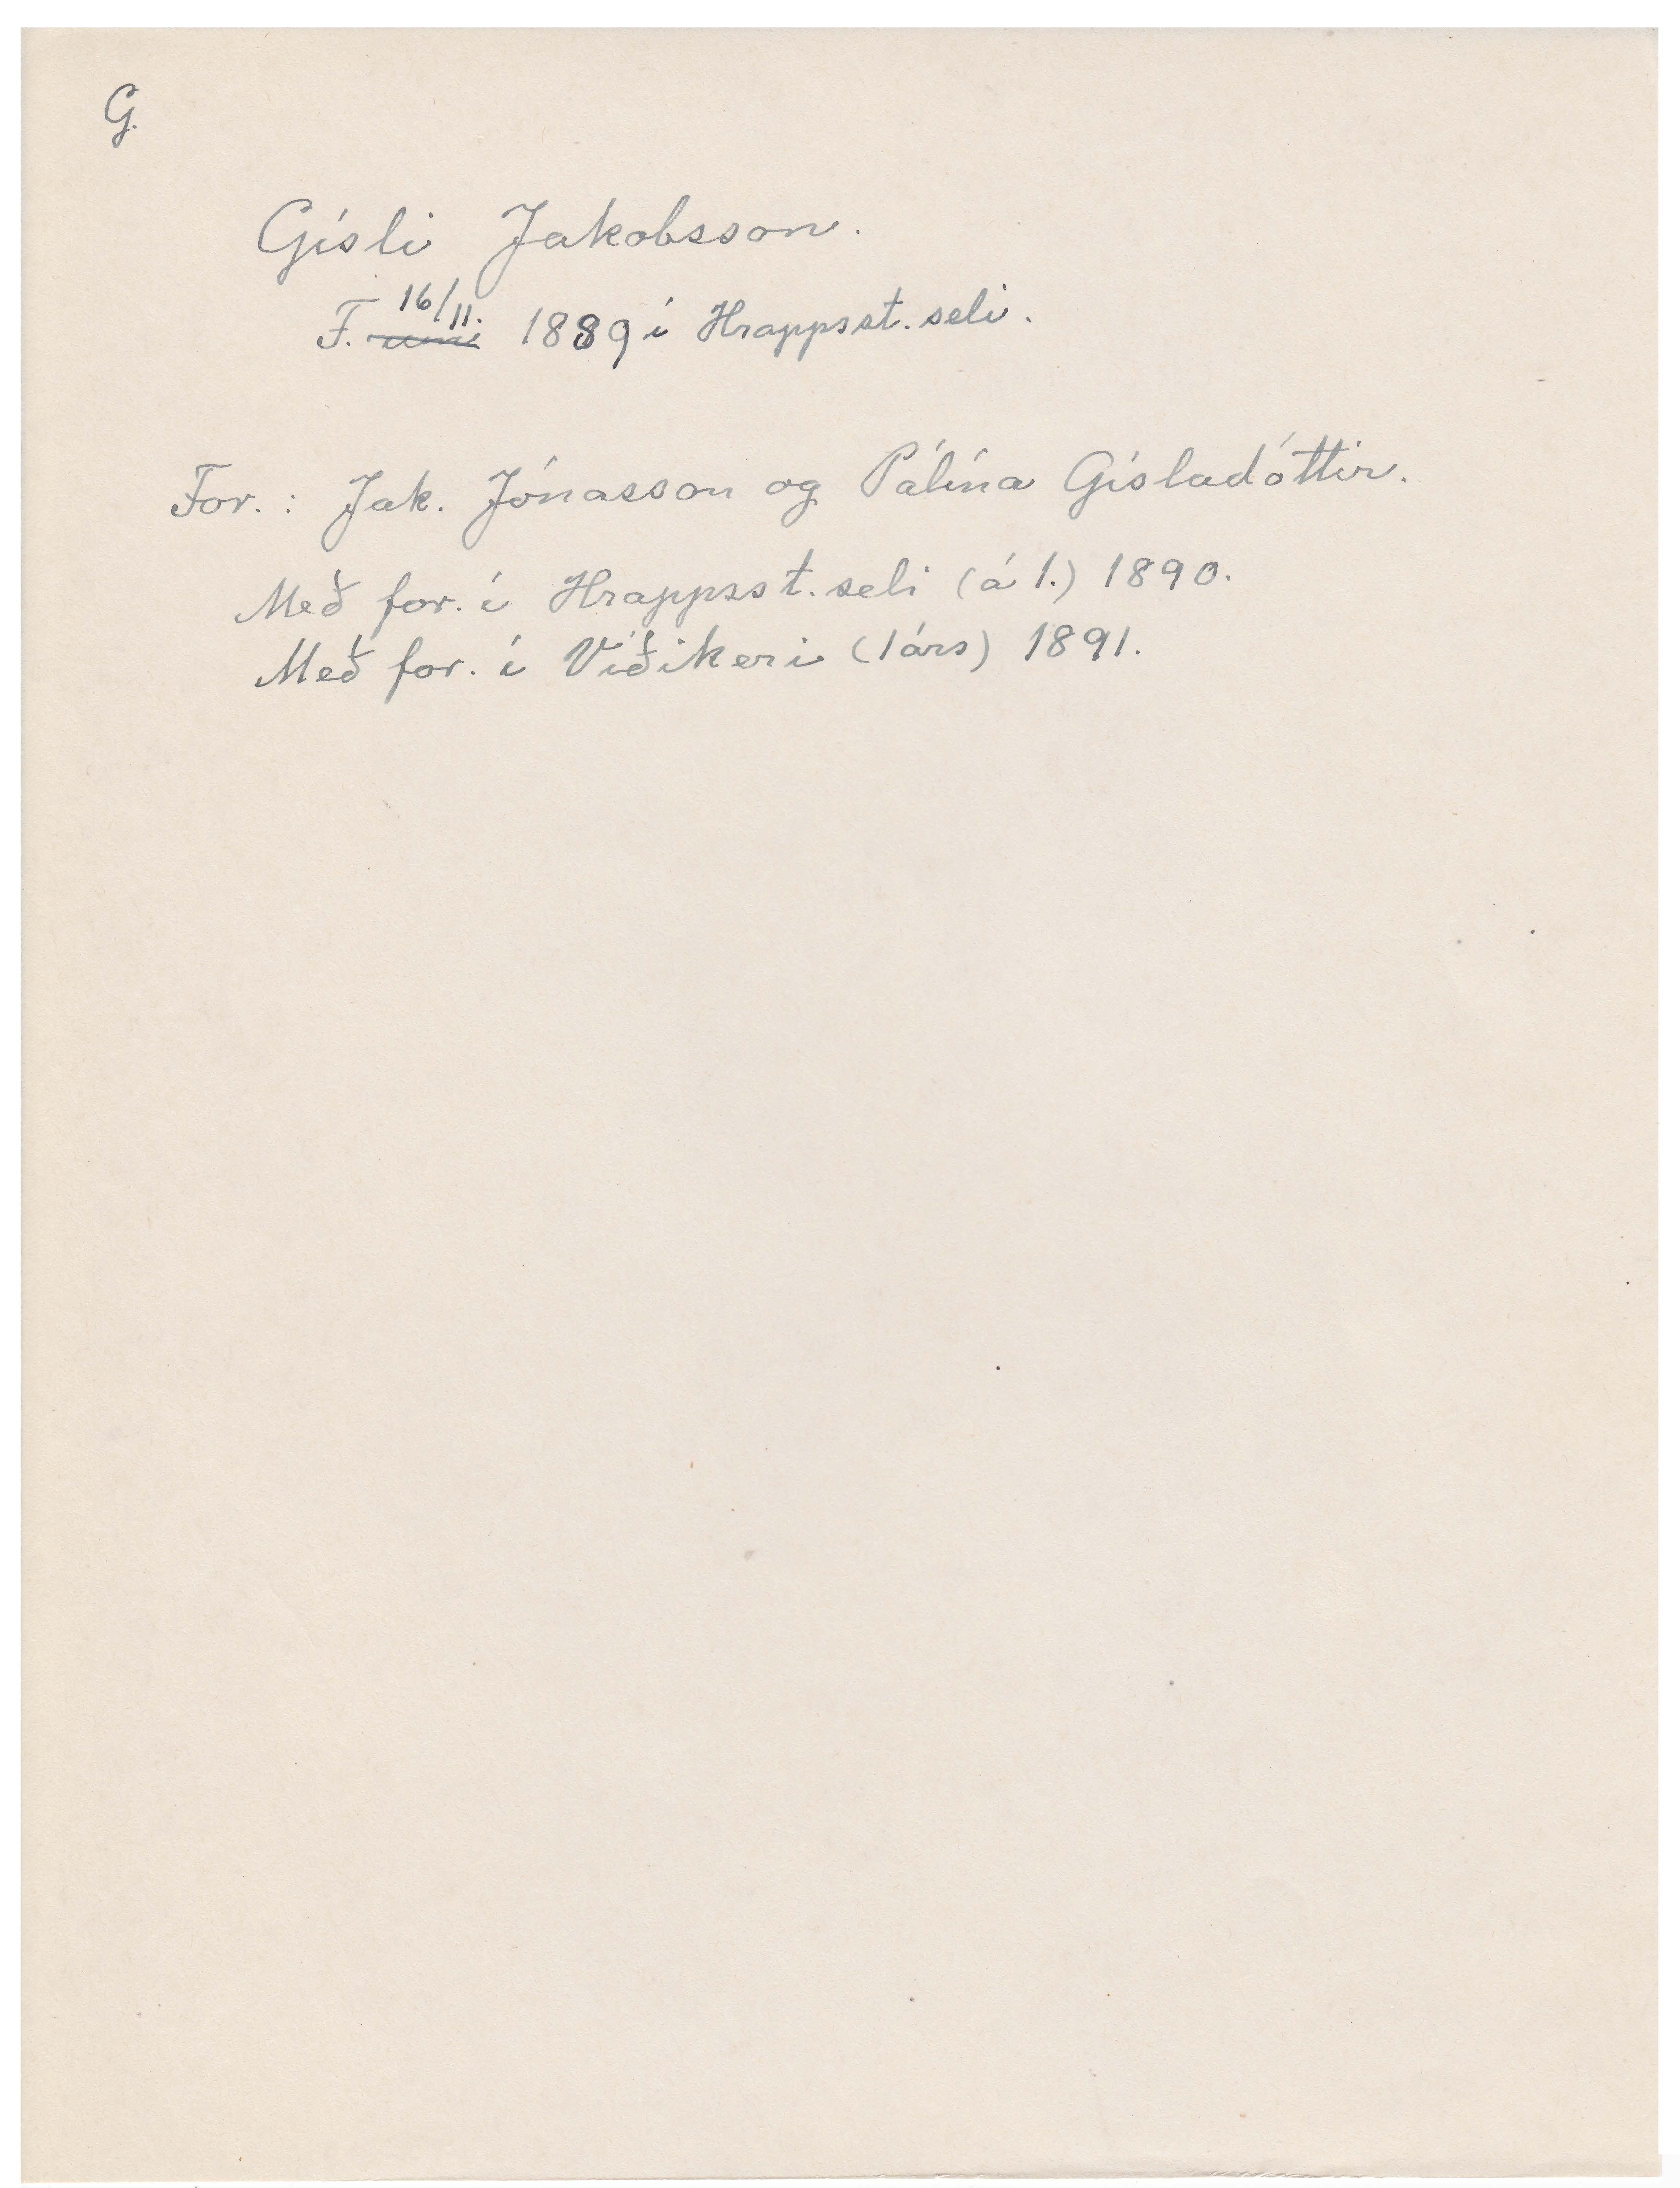 G.
Gísli Jakobsson.
F. 16/11. 1889 í Hrappsst. seli.
For.: Jak. Jónasson og Pálína Gísladóttir.
Með for. í Hrappsst. seli (á 1.) 1890.
Með for. í Víðikeri (1 árs) 1891.